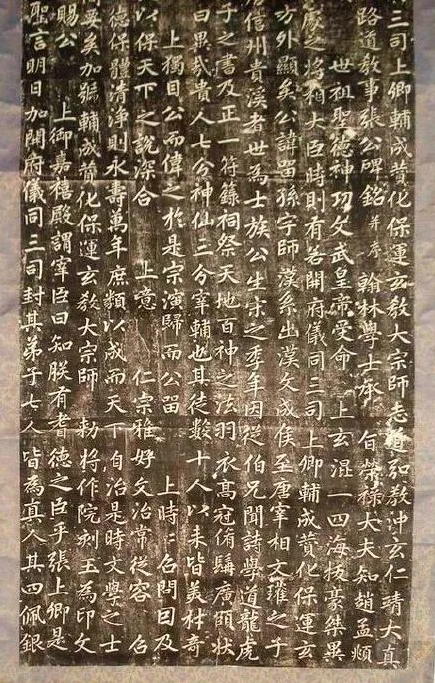 三司上卿輔成贊化保運玄教大宗師志道弘教沖玄仁靖大真
路道教事張公碑銘并序 翰林學士承 旨榮祿大夫知趙孟頫
世祖聖德神功文武皇帝受命 上玄混一四海拔豪桀異
之將相大臣時則有若開府儀同三司上卿輔成贊化保運玄
方外顯矣公諱留孫字師漢系出漢文成侯至唐宰相文瓘之千
居信州貴溪者世為士族公生宋之季年因從伯兄聞詩學道龍虎
子之書及正一符籙祠祭天地百神之法羽衣高冠脩髯廣頤狀
曰異哉貴人七分神仙三分宰輔也其徒數十人以来皆美材奇
上獨目公而偉之於是宗演歸而公留 上時〻召問因及
以保天下之說深合 上意 仁宗雅好文治常從容 召
德保體清淨則永壽萬年庶類以成而天下自治是時文學之士
矣加號輔成贊化保運玄教大宗師 勑將作院刻玉為印文
賜公 上御嘉禧殿謂宰臣曰知朕有耆德之臣乎張上卿是
聖言明日加開府儀同三司封其弟子七人皆為真人其四佩銀